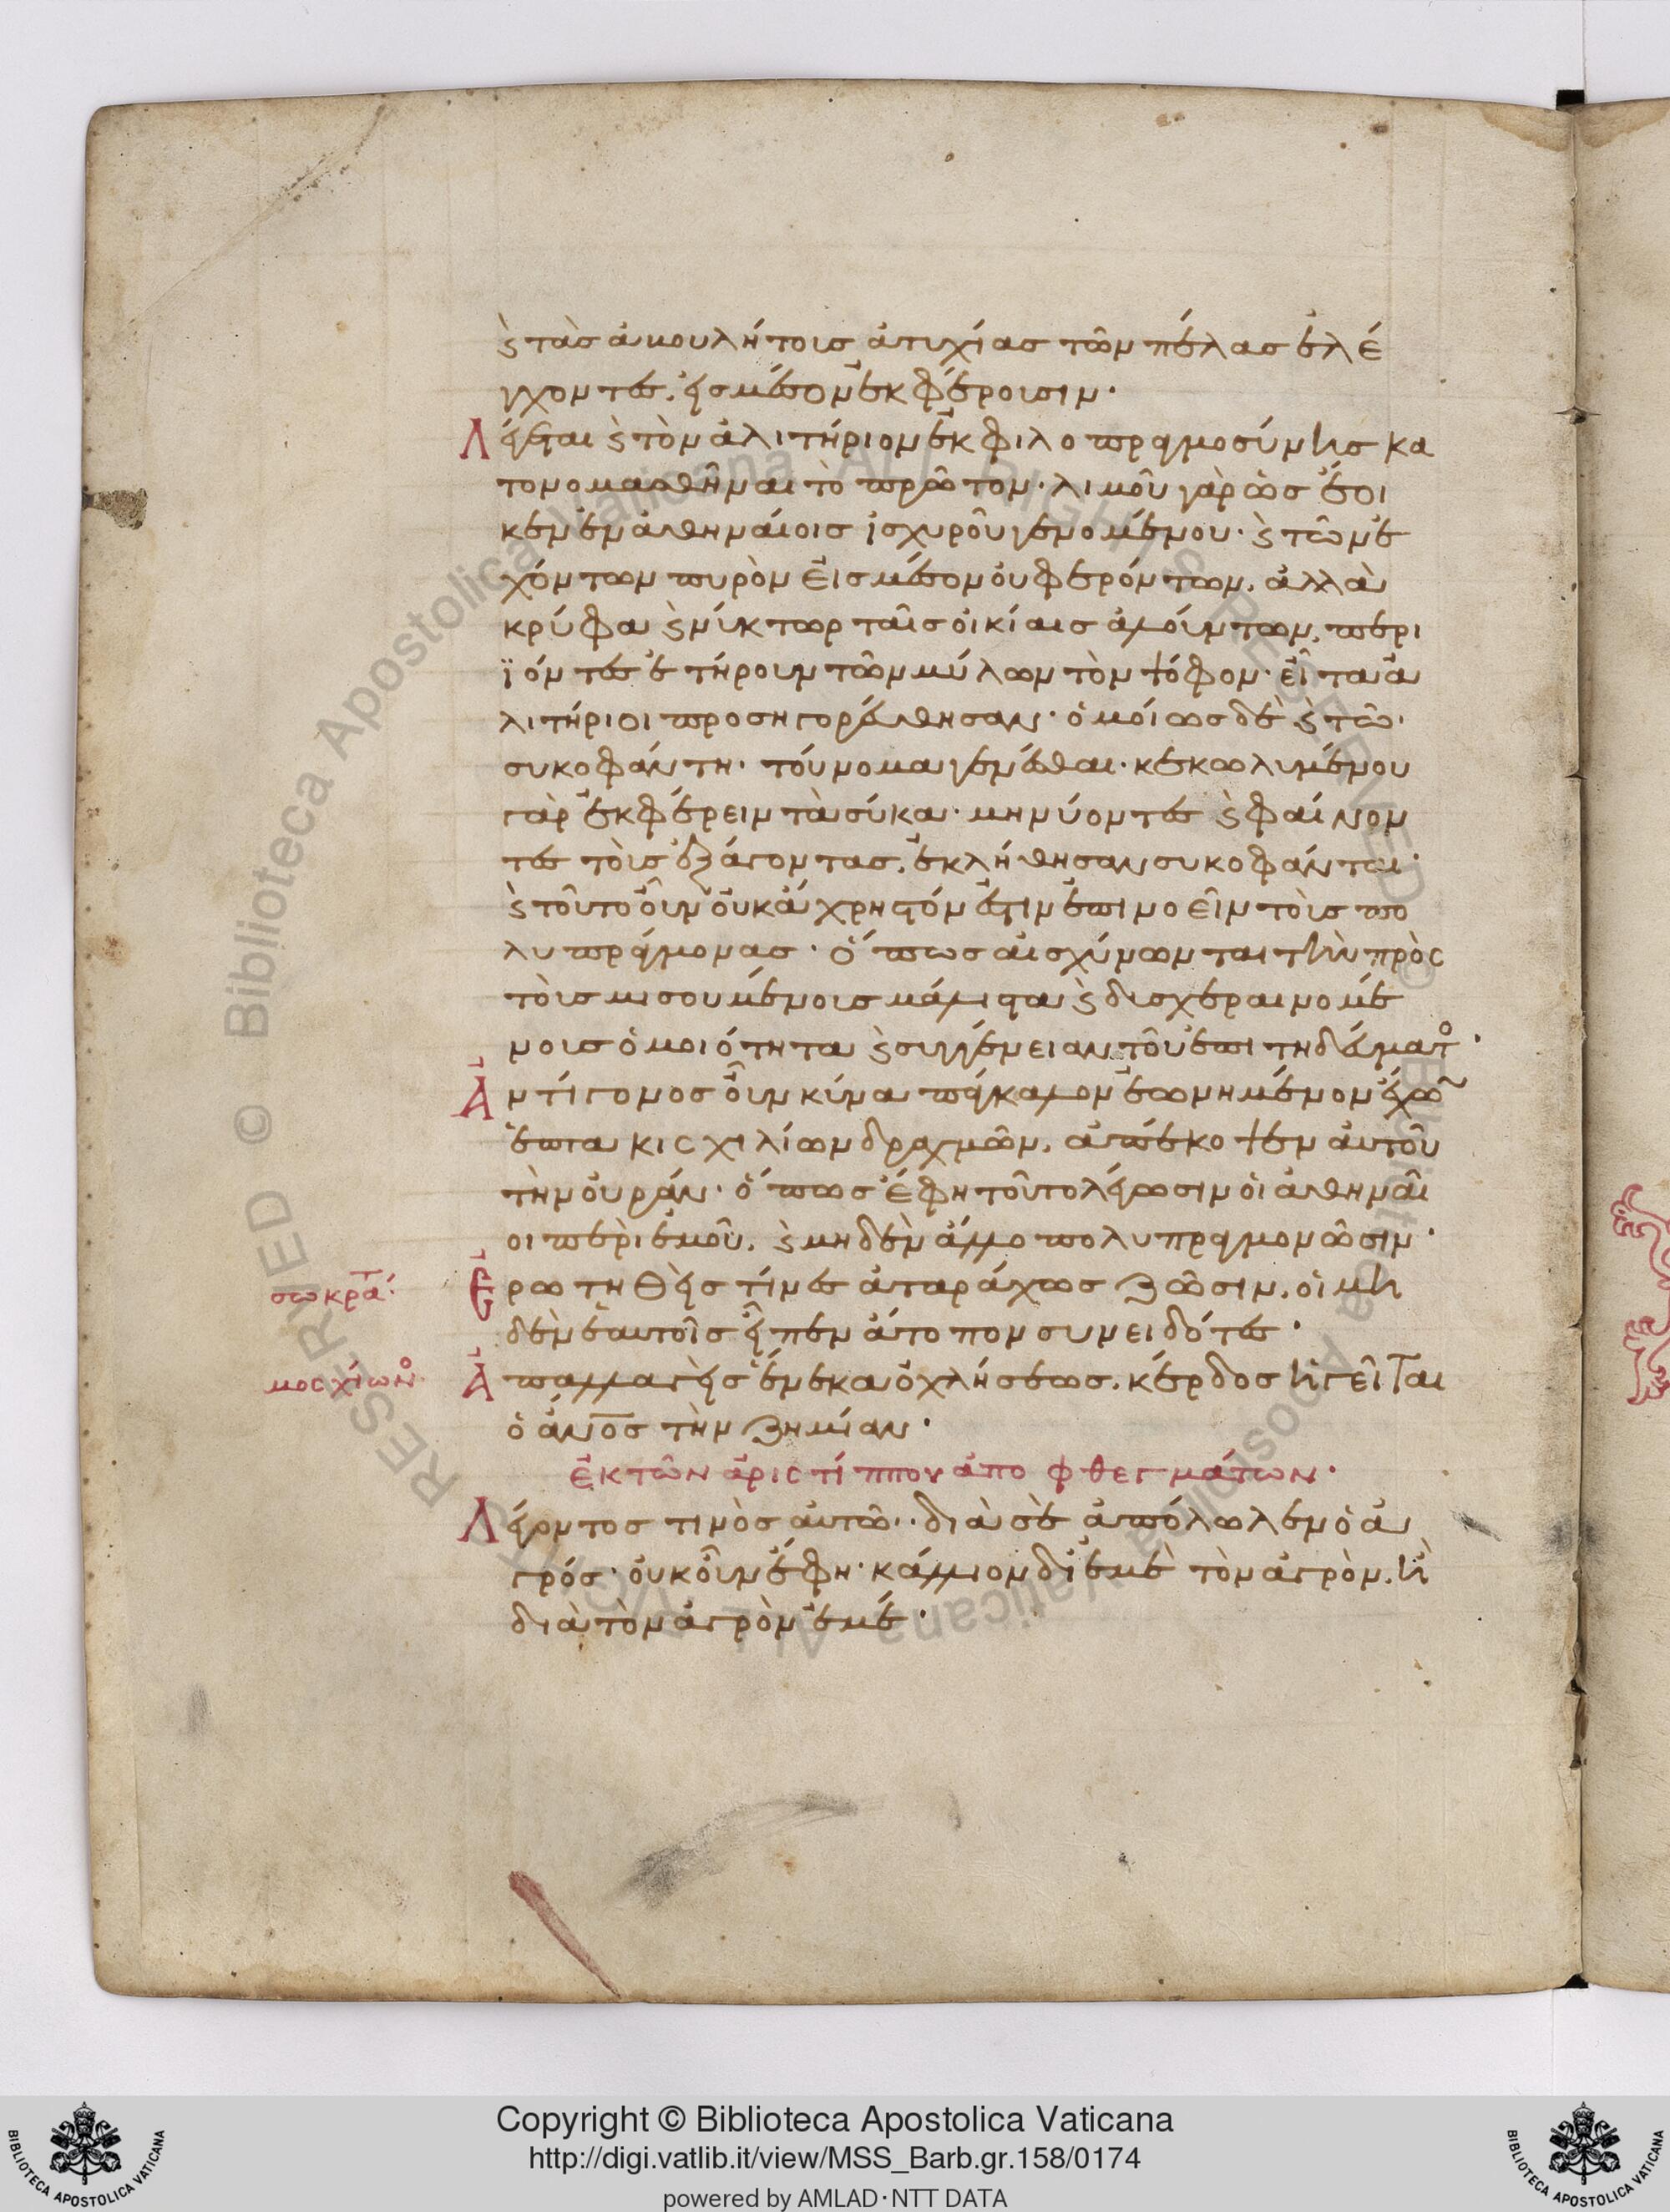 καὶ τὰς ἀκουλήτοις ἀτυχίας τῶν πέλας ἐλέ
γχοντες, ἐς μέσον ἐκφέροισιν·
Λέγεται καὶ τὸν ἀλιτήριον ἐκ φιλοπραγμοσύνης κα
τονομασθῆναι τὸ πρῶτον· λιμοῦ γὰρ ὡς ἔοι
κεν ἐν ἀθηναίοις ἰσχυροῦ γενομένου· καὶ τῶν ἐ
χόντων πυρὸν εἰς μέσον οὐ φερόντων, ἀλλὰ
κρύφα καὶ νύκτωρ ταῖς οἰκίαις ἀλούντων, περι
ϊόντες ἐτήρουν τῶν μύλων τὸν ψόφον· εἶτα ἀ
λιτήριοι προσηγορεύθησαν· ὁμοίως δὲ καὶ τῶ
συκοφάντη· τοὔνομα γενέσθαι· κεκωλυμένου
γὰρ ἐκφέρειν τὰ σύκα· μηνύοντες καὶ φαίνον
τες τοὺς ἐξάγοντας, ἐκλήθησαν συκοφάνται·
καὶ τοῦτο οὖν οὐκ ἄχρηστόν ἐστιν ἐπινοεῖν τοὺς πο
λυπράγμονας· ὅπως αἰσχύνωνται τὴν πρὸς
τοὺς μισουμένους μάλιστα καὶ δυσχεραινομέ
νους ὁμοιότητα καὶ συγγένειαν τοῦ ἐπιτηδεύματο·
Ἀντίγονος οὖν κύνα πάγκαλον ἐωνημένον ἔχων
ἑπτακισχιλίων δραχμῶν, ἀπέκοψεν αὐτοῦ
τὴν οὐράν· ὅπως ἔφη τοῦτο λέγωσιν οἱ ἀθηναῖ
οι περὶ ἐμοῦ, καὶ μηδὲν ἄλλο πολυπραγμονῶσιν·
σωκρατ
Ἐρωτηθεὶς τίνες ἀταράχως ζῶσιν, οἱ μη
δὲν ἑαυτοῖς εἶπεν ἄτοπον συνειδότες·
μοσχίωνο
Ἀπαλλαγεὶς ἕνεκα ὀχλήσεως, κέρδος ἡγεῖται
ὁ ἀνος τὴν ζημίαν·
ἐκ τῶν ἀριστίππου ἀποφθεγμάτων·
Λέγοντος τινὸς αὐτῶ· διὰ σὲ ἀπόλωλεν ὁ ἀ
γρός· οὐκοῦν ἔφη· κάλλιον δι' ἐμὲ τὸν ἀγρὸν, ἢ
διὰ τὸν ἀγρὸν ἐμέ·
Copyright © Biblioteca Apostolica Vaticana
http://digi.vatlib.it/view/MSS_Barb.gr.158/0174
powered by AMLAD·NTT DATA